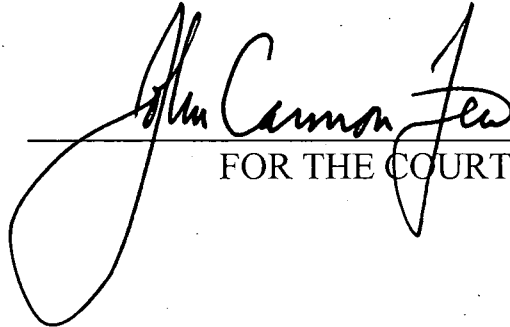 John Cannon Few
FOR THE COURT